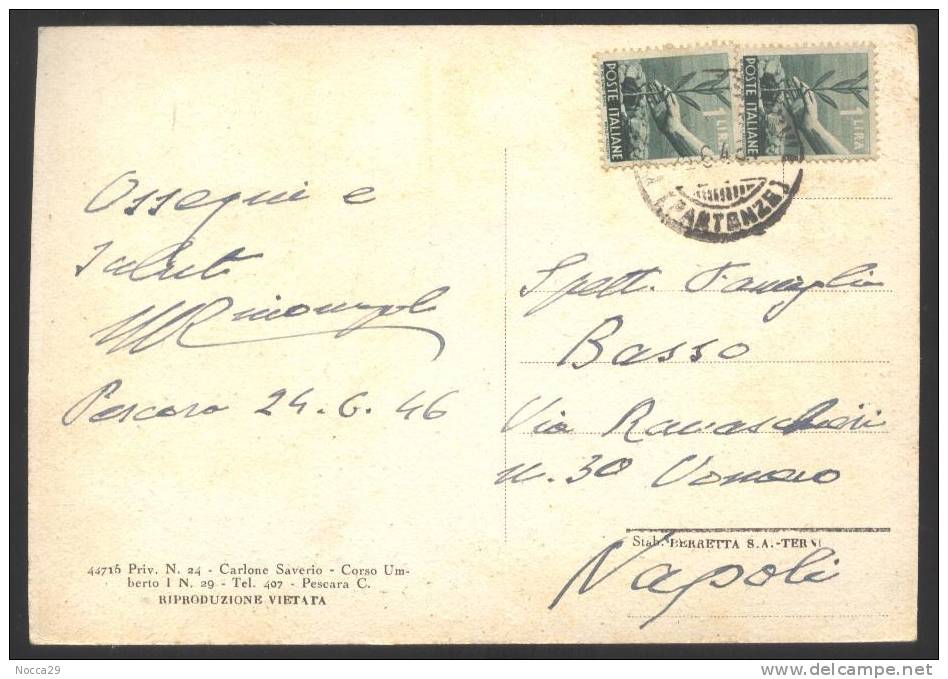 POSTE ITALIANE
1 LIRA
POSTE ITALIANE
1 LIRA
(PARTENZE)
Ossequi e
saluti
Pescara 24.6.46
Spett. Famiglia
Basso
Via Ravaschieri
n. 30 Vomero
Napoli
Stab. BERRETTA S.A.-TERNI
44715 Priv. N. 24 - Carlone Saverio - Corso Um-
berto I N. 29 - Tel. 407 - Pescara C.
RIPRODUZIONE VIETATA
Nocca29
www.delcampe.net